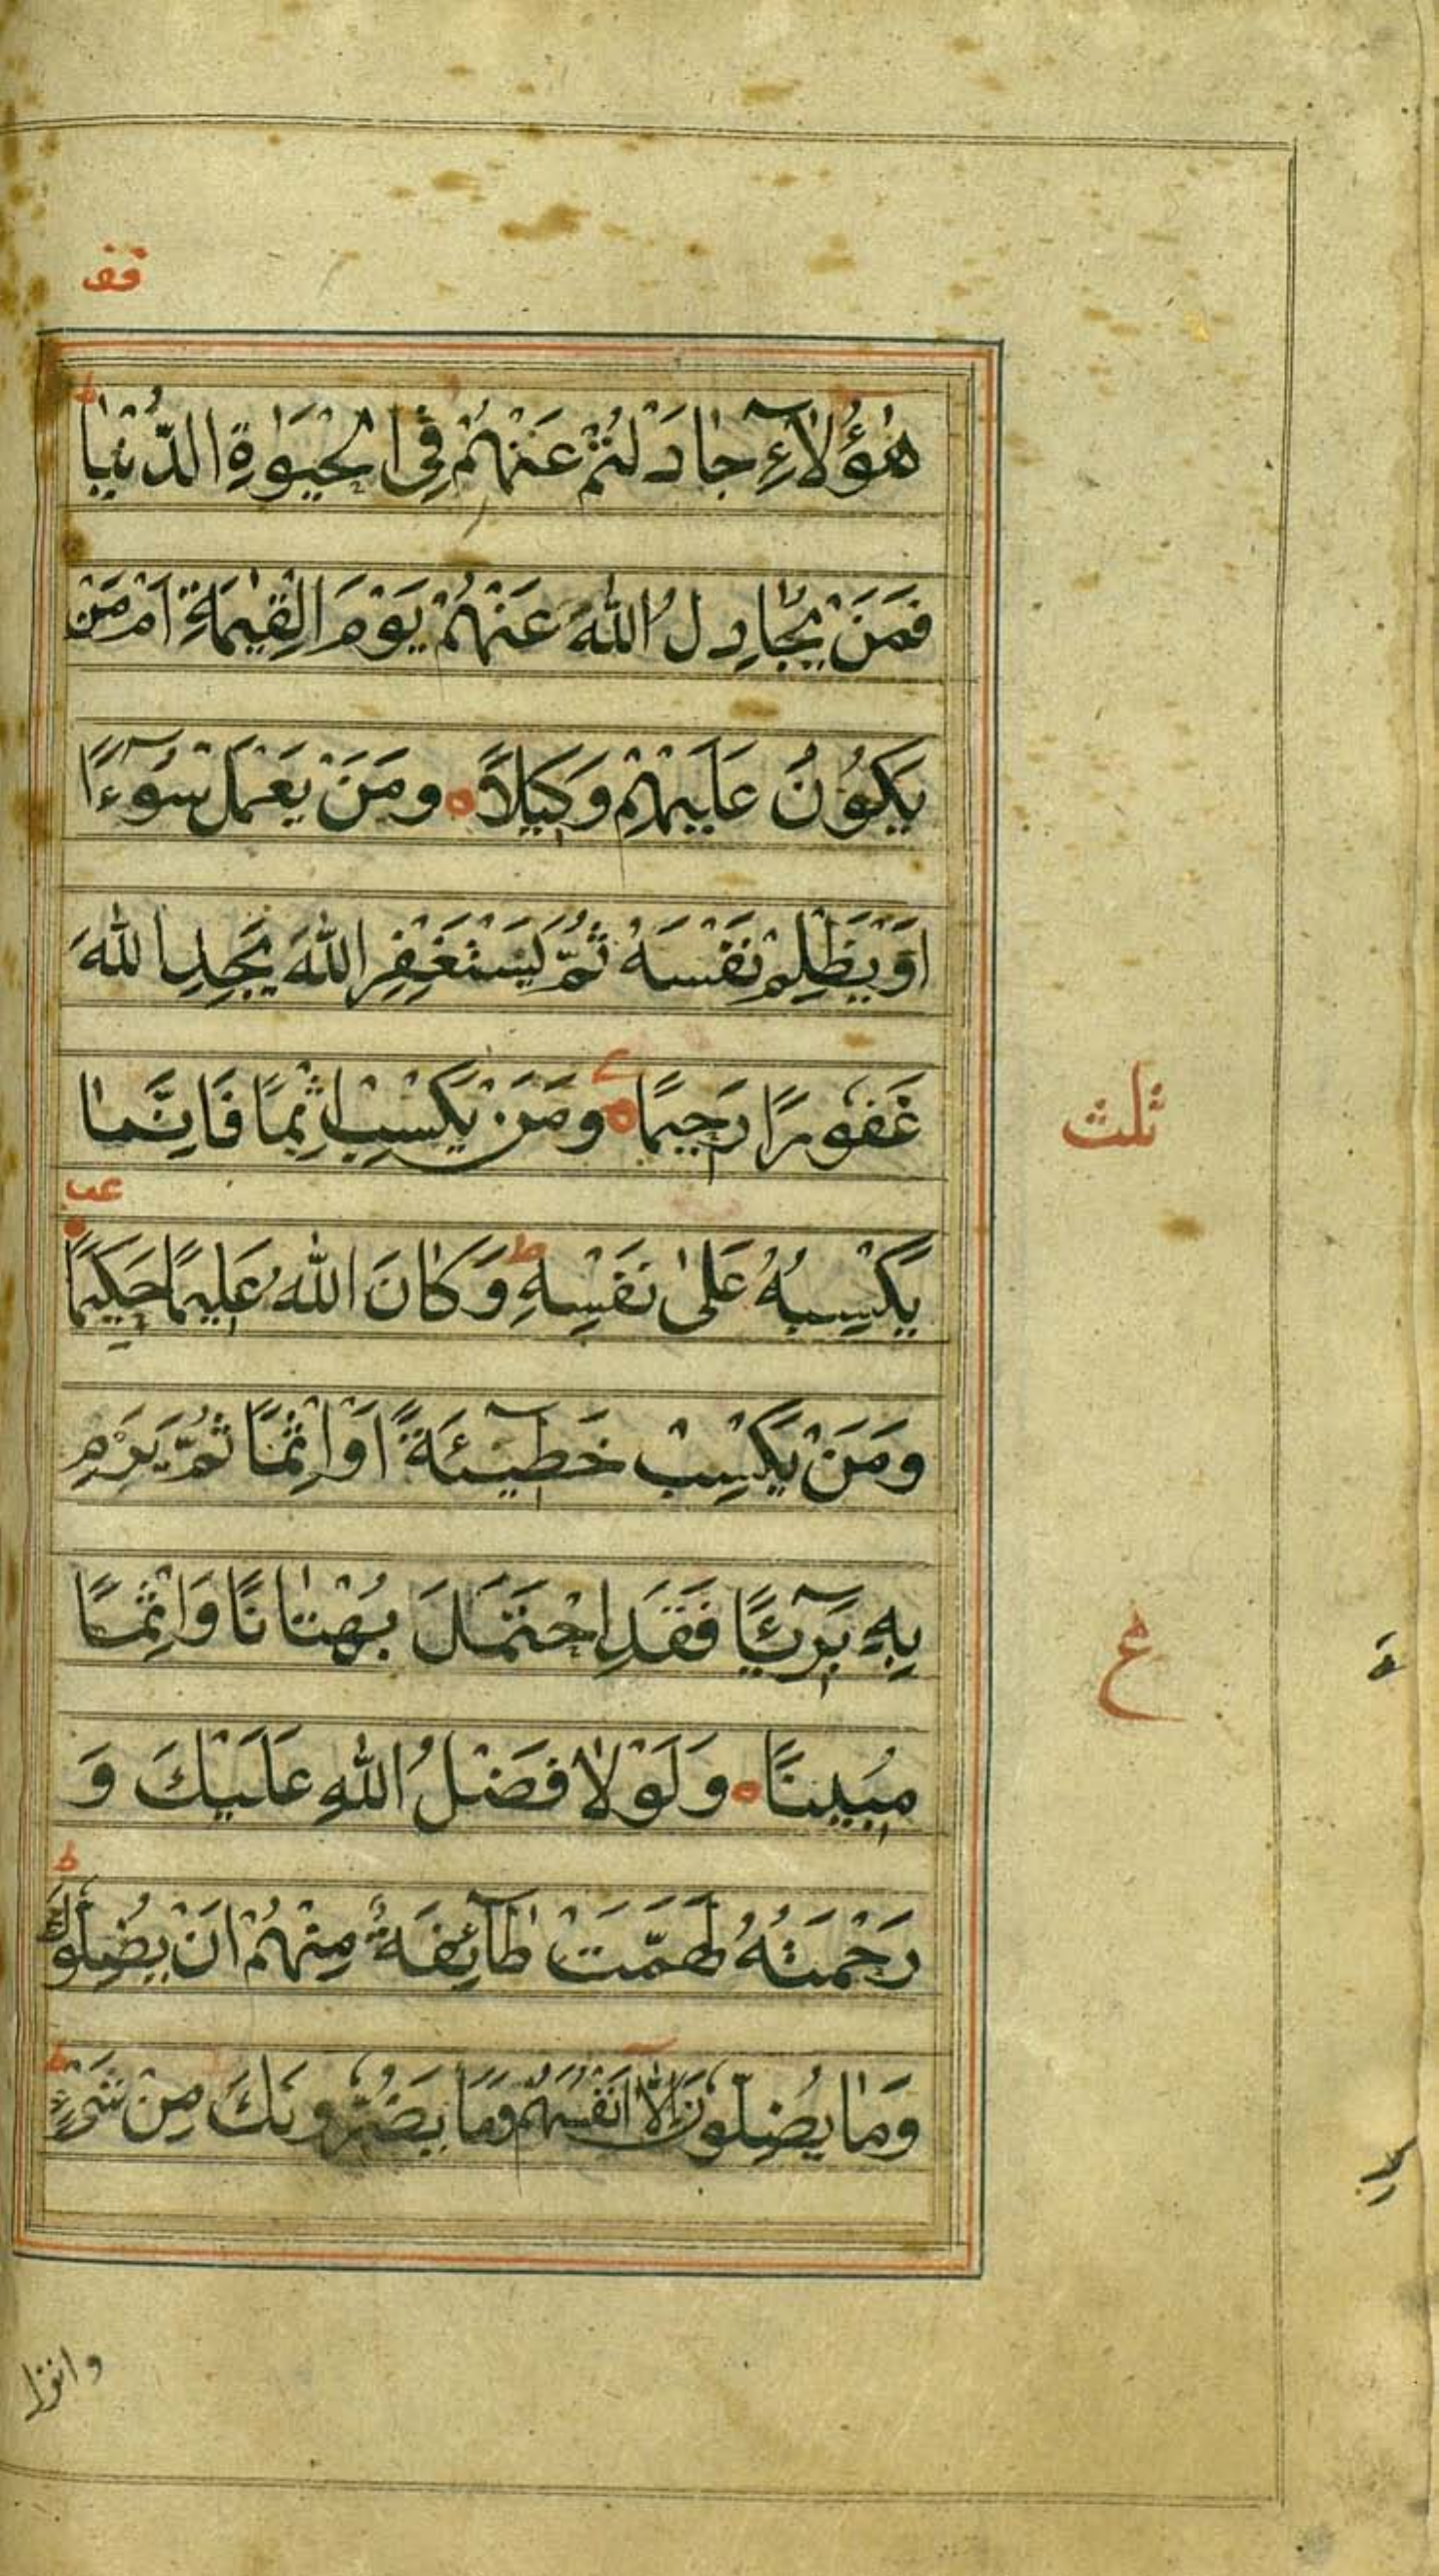 قف
هٰؤُلَآءِ جٰادَلْتُمْ عَنْهُمْ فِى الْحَيٰوةِ الدُّنْيٰا ط
فَمَنْ يُجٰادِلُ اللّٰهَ عَنْهُمْ يَوْمَ الْقِيٰمَةِ اَمْ مَنْ
يَكُوْنُ عَلَيْهِمْ وَكِيْلًا ه وَمَنْ يَعْمَلْ سُوْٓءًا
اَوْ يَظْلِمْ نَفْسَهُ ثُمَّ يَسْتَغْفِرِ اللّٰهَ يَجِدِ اللّٰهَ
غَفُوْرًا رَحِيْمًا ه وَمَنْ يَكْسِبْ اِثْمًا فَاِنَّمٰا
ثلث
عب
يَكْسِبُهُ عَلٰى نَفْسِهِ ط وَكٰانَ اللّٰهُ عَلِيْمًا حَكِيْمًا
وَمَنْ يَكْسِبْ خَطِيْٓئَةً اَوْ اِثْمًا ثُمَّ يَرْمِ
بِهِ بَرِيْٓئًا فَقَدِ احْتَمَلَ بُهْتٰانًا وَاِثْمًا
ع
مُبِيْنًا ه وَلَوْلٰا فَضْلُ اللّٰهِ عَلَيْكَ وَ
رَحْمَتُهُ لَهَمَّتْ طٰٓائِفَةٌ مِنْهُمْ اَنْ يُضِلُّوْكَ ط
وَمٰا يُضِلُّوْنَ اِلَّآ اَنْفُسَهُمْ وَمٰا يَضُرُّوْنَكَ مِنْ شَىْءٍ ط
وانزل